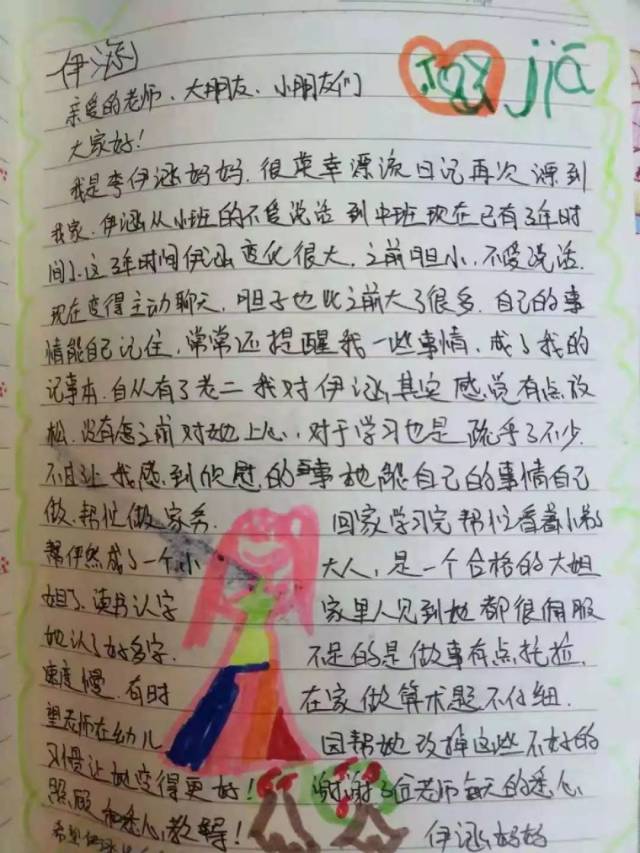 伊涵
jiā
亲爱的老师、大朋友、小朋友们
大家好！
我是李伊涵妈妈.很荣幸漂流日记再次漂到
我家.伊涵从小班的不爱说话到中班现在已有2年时
间了.这2年时间伊涵变化很大,之前胆小,不爱说话.
现在变得主动聊天,胆子也比之前大了很多.自己的事
情能自己记住,常常还提醒我一些事情,成了我的
记事本.自从有了老二我对伊涵其实感觉有点放
松.没有怎之前对她上心,对于学习也是疏乎了不少.
不过让我感到欣慰的事她能自己的事情自己
做、帮忙做家务. 回家学习完帮忙看着小弟
帮伊然成了一个小 大人,是一个合格的大姐
姐了.读书认字 家里人见到她都很佩服
她认了好多字. 不足的是做事有点托拉,
速度慢.有时 在家做算术题不仔细.
望老师在幼儿 园帮她改掉这些不好的
习惯让她变得更好! 谢谢3位老师每天的悉心
照顾和悉心教导! 伊涵妈妈
希望伊涵